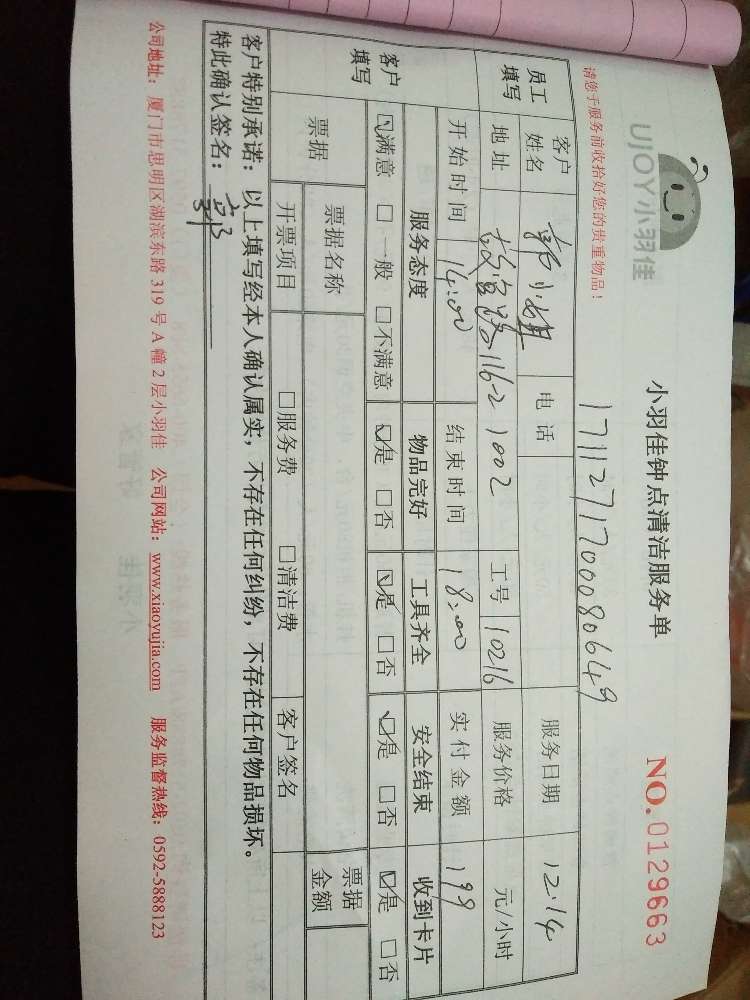 UJOY小羽佳
小羽佳钟点清洁服务单
NO.0129663
请您于服务前收拾好您的贵重物品！
1711271700080649
员工填写 客户姓名 郭小姐 电话 服务日期 12.14
地址 1162 1002 工号 10216 服务价格 元/小时
开始时间 14:00 结束时间 18:00 实付金额 199
客户填写 服务态度 物品完好 工具齐全 安全结束 收到卡片
☑满意 □一般 □不满意 ☑是 □否 ☑是 □否 ☑是 □否 ☑是 □否
票据 票据名称 票据金额
开票项目 □服务费 □清洁费 客户签名
客户特别承诺：以上填写经本人确认属实，不存在任何纠纷，不存在任何物品损坏。
特此确认签名：
公司地址：厦门市思明区湖滨东路 319 号 A 幢 2 层小羽佳 公司网站：www.xiaoyujia.com 服务监督热线：0592-5888123